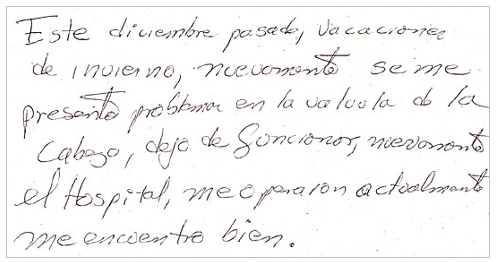 Este diciembre pasado, vacaciones
de invierno, nuevamente se me
presentó problema en la valvola de la
Cabeza, dejo de funcionar, nuevamente
el Hospital, me operaron actualmente
me encuentro bien.